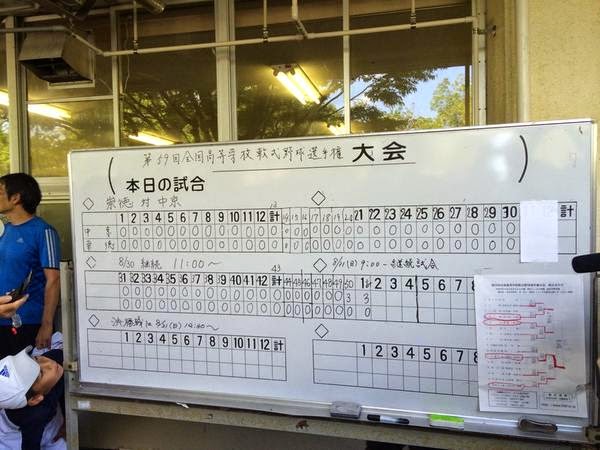 第59回全国高等学校軟式野球選手権 大会
本日の試合
崇徳 対 中京 13
1 2 3 4 5 6 7 8 9 10 11 12 計 14 15 16 17 18 19 20 21 22 23 24 25 26 27 28 29 30
中京 0 0 0 0 0 0 0 0 0 0 0 0 0 0 0 0 0 0 0 0 0 0 0 0 0 0 0 0 0 0
崇徳 0 0 0 0 0 0 0 0 0 0 0 0 0 0 0 0 0 0 0 0 0 0 0 0 0 0 0 0 0 0
8/30 継続 11:00〜 43 8/31(日) 9:00〜継続試合
31 32 33 34 35 36 37 38 39 40 41 42 計 44 45 46 47 48 49 50 1 2 3 4 5 6 7 8
0 0 0 0 0 0 0 0 0 0 0 0 0 0 0 0 0 0 0 3 3
0 0 0 0 0 0 0 0 0 0 0 0 0 0 0 0 0 0 0 0 0
決勝戦は 8/31(日)
1 2 3 4 5 6 7 8 9 10 11 12 計 1 2 3 4 5 6 7 8